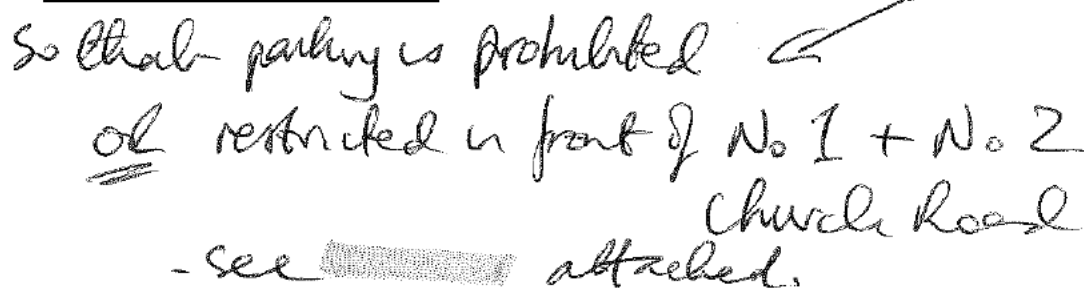 So that parking is prohibited
or restricted in front of No 1 + No 2
Church Road
- see attached.